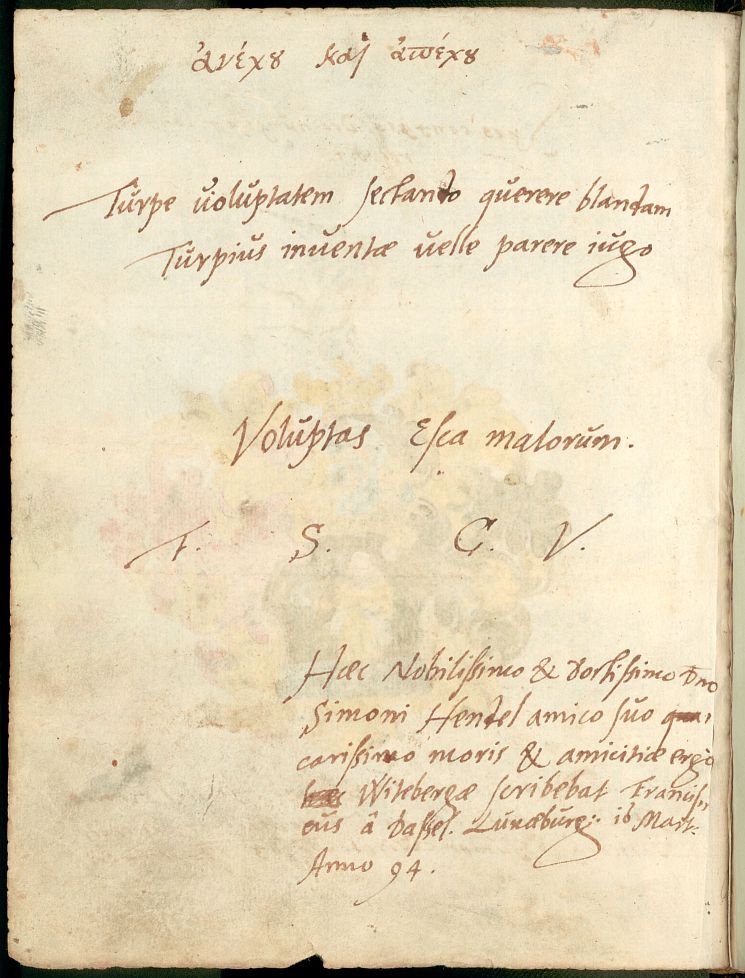 ἀνέχου καὶ ἀπέχου
Turpe voluptatem sectando querere blandam
Turpius inventæ velle parere iugo
Voluptas Esca malorum.
T. S. C. V.
Hæc Nobilissimo & doctissimo Dno
Simoni Hendel amico suo
carissimo moris & amicitiæ ergo
Witebergæ scribebat Francis-
cus â Dassel. Lunæburg: 16 Mart.
Anno 94.